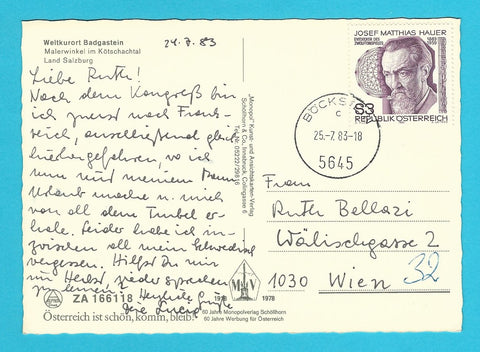 Weltkurort Badgastein
Malerwinkel im Kötschachtal
Land Salzburg
24.7.83
Liebe Ruth!
Nach dem Kongreß bin
ich zuerst nach Frank-
reich, anschließend gleich
hierhergefahren, wo ich
nun mit meinem Mann
Urlaub mache u. mich
von all dem Trubel er-
hole. Leider habe ich in-
zwischen all mein Schwedisch
vergessen. Hilfst Du mir
im Herbst, wieder sprechen
zu lernen? Herzliche Grüße
Deine
ZA 166118
Österreich ist schön, komm, bleib!
"Monopol" Kunst- und Ansichtskarten-Verlag
Schöllhorn & Co, Innsbruck, Colingasse 6
M V
1918 1978
60 Jahre Monopolverlag Schöllhorn
60 Jahre Werbung für Österreich
JOSEF MATTHIAS HAUER
S3
REPUBLIK ÖSTERREICH
c
25.-7.83-18
5645
Frau
Ruth Bellazi
Wälischgasse 2
32
1030 Wien